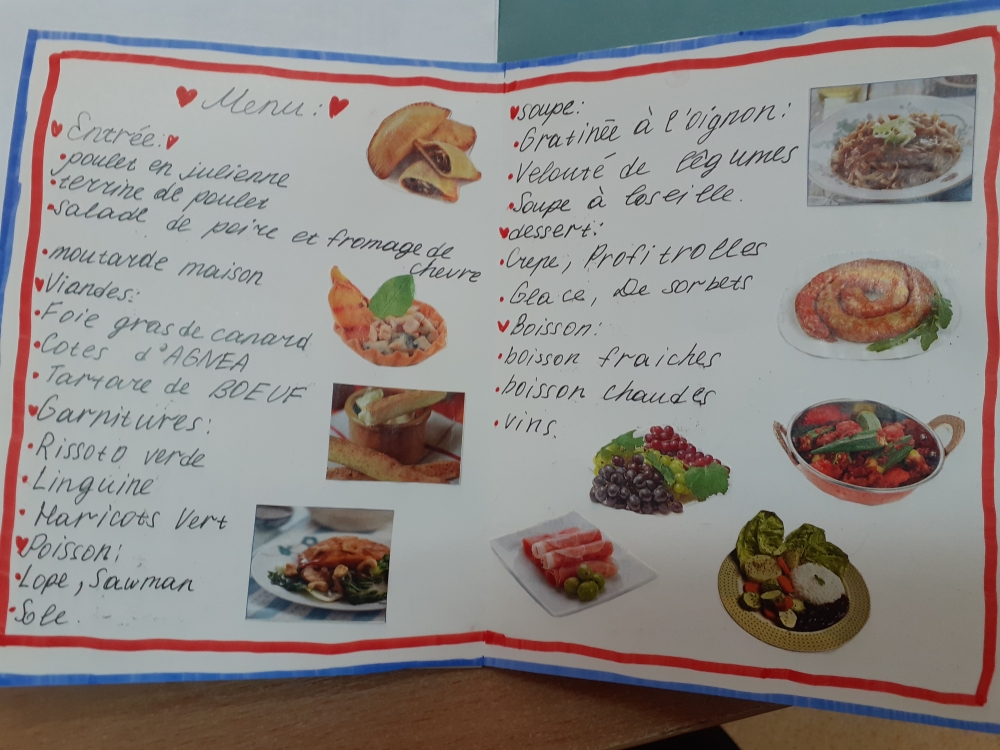 Menu:
Entrée:
poulet en julienne
terrine de poulet
salade de poire et fromage de
chevre
moutarde maison
Viandes:
Foie gras de canard
Cotes d'AGNEA
Tartare de BOEUF
Garnitures:
Rissoto verde
Linguine
Haricots Vert
Poisson:
Lope, Sawman
Sole.
soupe:
Gratinée à l'oignon:
Velouté de légumes
Soupe à loseille.
dessert:
Crepe, Profitrolles
Glace, De sorbets
Boisson:
boisson fraiches
boisson chaudes
vins.